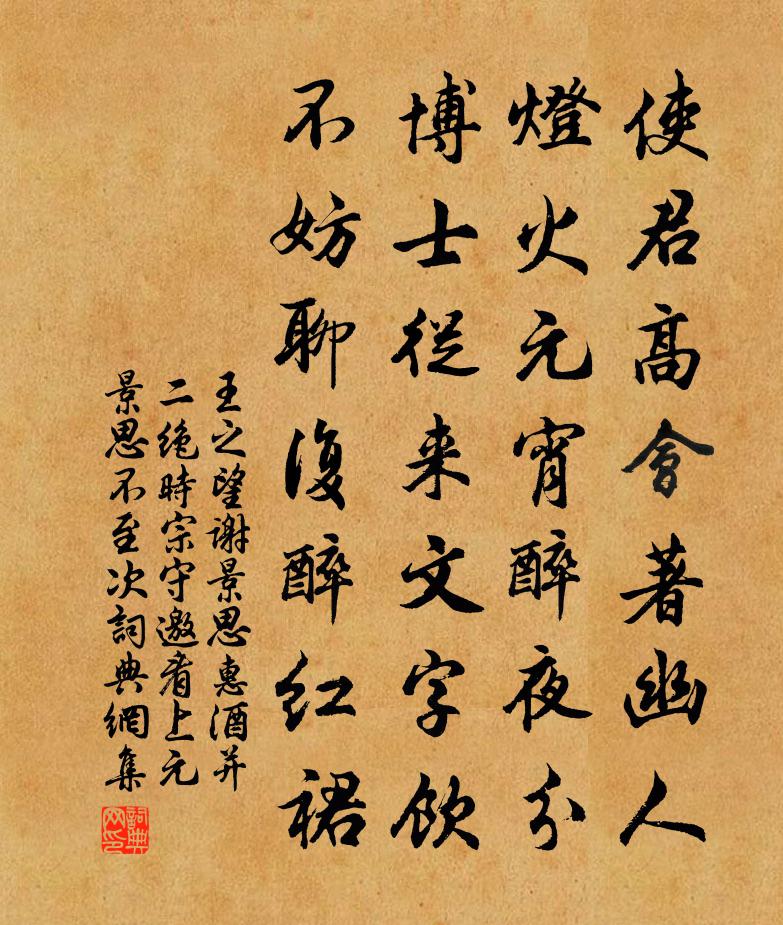 使君高會著幽人
燈火元宵醉夜分
博士從来文字飲
不妨聊復醉紅裙
王之望謝景思惠酒并
二绝時宗守邀看上元
景思不至次詞典網集
詞典网印